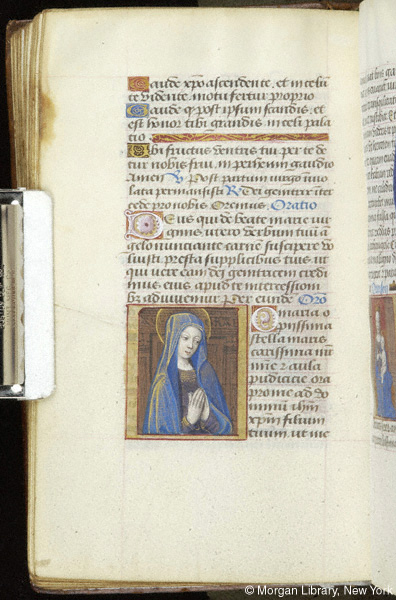 Gaude xpo ascendente, et in celū
te vidente, motu fertur proprio
Gaude q̄ post ipsum scandis, et
est honor tibi grandis, in celi pala
cio
Vbi fructus ventris tui per te de
tur nobis frui, in perhenni gaudio
Amen V Post partum virgo īvio
lata permansisti R Dei genitrix īter
cede pro nobis Oremus. Oratio
Deus qui de beate marie vir
ginis utero verbum tuū ā
gelo nunciante carnē suscipere vo
luisti presta supplicibus tuis ut
qui vere eam dei genitricem credi
mus eius apud te intercessioni
bꝫ adiuvemur Per eundē Orō
O maria o
piissima
stella maris
carissima mū
me ⁊ aula
pudicicie ora
pro me ad do
minū ihm̄
xpm̄ filium
tuum. ut me
© Morgan Library, New York